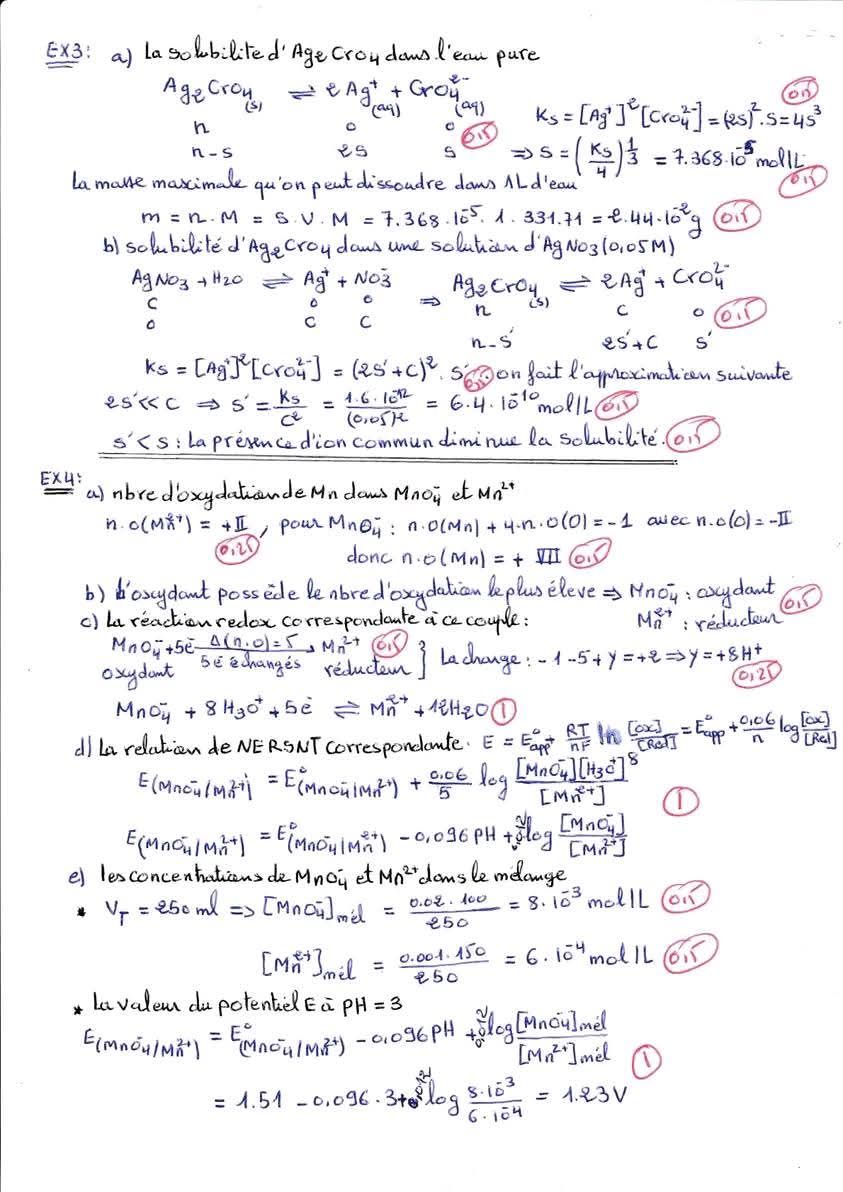 EX3: a) La solubilite d'Ag2CrO4 dans l'eau pure
Ag2CrO4(s) ⇌ 2Ag+(aq) + CrO4^2-(aq)
n 0 0 Ks = [Ag+]^2[CrO4^2-] = (2s)^2.s = 4s^3 0,5
n-s 2s s 0,5 ⇒ s = (Ks/4)^1/3 = 7.368.10^-5 mol/L 0,5
La masse maximale qu'on peut dissoudre dans 1L d'eau
m = n.M = s.V.M = 7.368.10^-5.1.331.71 = 2.44.10^-2 g 0,5
b) solubilité d'Ag2CrO4 dans une solution d'AgNO3 (0,05M)
AgNO3 + H2O ⇌ Ag+ + NO3^- ⇒ Ag2CrO4(s) ⇌ 2Ag+ + CrO4^2-
C 0 0 n C 0 0,5
0 C C n-s' 2s'+C s'
Ks = [Ag+]^2[CrO4^2-] = (2s'+C)^2.s' 0,25 on fait l'approximation suivante
2s' << C ⇒ s' = Ks/C^2 = 1.6.10^-12/(0,05)^2 = 6.4.10^-10 mol/L 0,5
s' < s : La présence d'ion commun diminue la solubilité. 0,5
EX4: a) nbre d'oxydation de Mn dans MnO4^- et Mn^2+
n.o(Mn^2+) = +II, pour MnO4^- : n.o(Mn) + 4.n.o(O) = -1 avec n.o(O) = -II
0,25 donc n.o(Mn) = + VII 0,5
b) L'oxydant possède le nbre d'oxydation le plus éleve ⇒ MnO4^- : oxydant 0,5
c) La réaction redox correspondante à ce couple : Mn^2+ : réducteur
MnO4^- + 5e- Δ(n.o)=5 → Mn^2+ 0,5
oxydant 5e- échangés réducteur } La charge : -1-5+y = +2 ⇒ y = +8H+ 0,25
MnO4^- + 8H3O+ + 5e- ⇌ Mn^2+ + 12H2O 1
d) La relation de NERSNT correspondante. E = E°app + RT/nF ln [ox]/[Red] = E°app + 0,06/n log [ox]/[Red]
E(MnO4^-/Mn^2+) = E°(MnO4^-/Mn^2+) + 0.06/5 log [MnO4^-][H3O+]^8/[Mn^2+]
1
E(MnO4^-/Mn^2+) = E°(MnO4^-/Mn^2+) - 0,096 PH + 0,012 log [MnO4^-]/[Mn^2+]
e) les concentrations de MnO4^- et Mn^2+ dans le mélange
* VT = 250 ml => [MnO4^-]mél = 0.02.100/250 = 8.10^-3 mol/L 0,5
[Mn^2+]mél = 0.001.150/250 = 6.10^-4 mol/L 0,5
* La valeur du potentiel E à PH = 3
E(MnO4^-/Mn^2+) = E°(MnO4^-/Mn^2+) - 0,096 PH + 0,012 log [MnO4^-]mél/[Mn^2+]mél
1
= 1.51 - 0,096.3 + 0,012 log 8.10^-3/6.10^-4 = 1.23 V